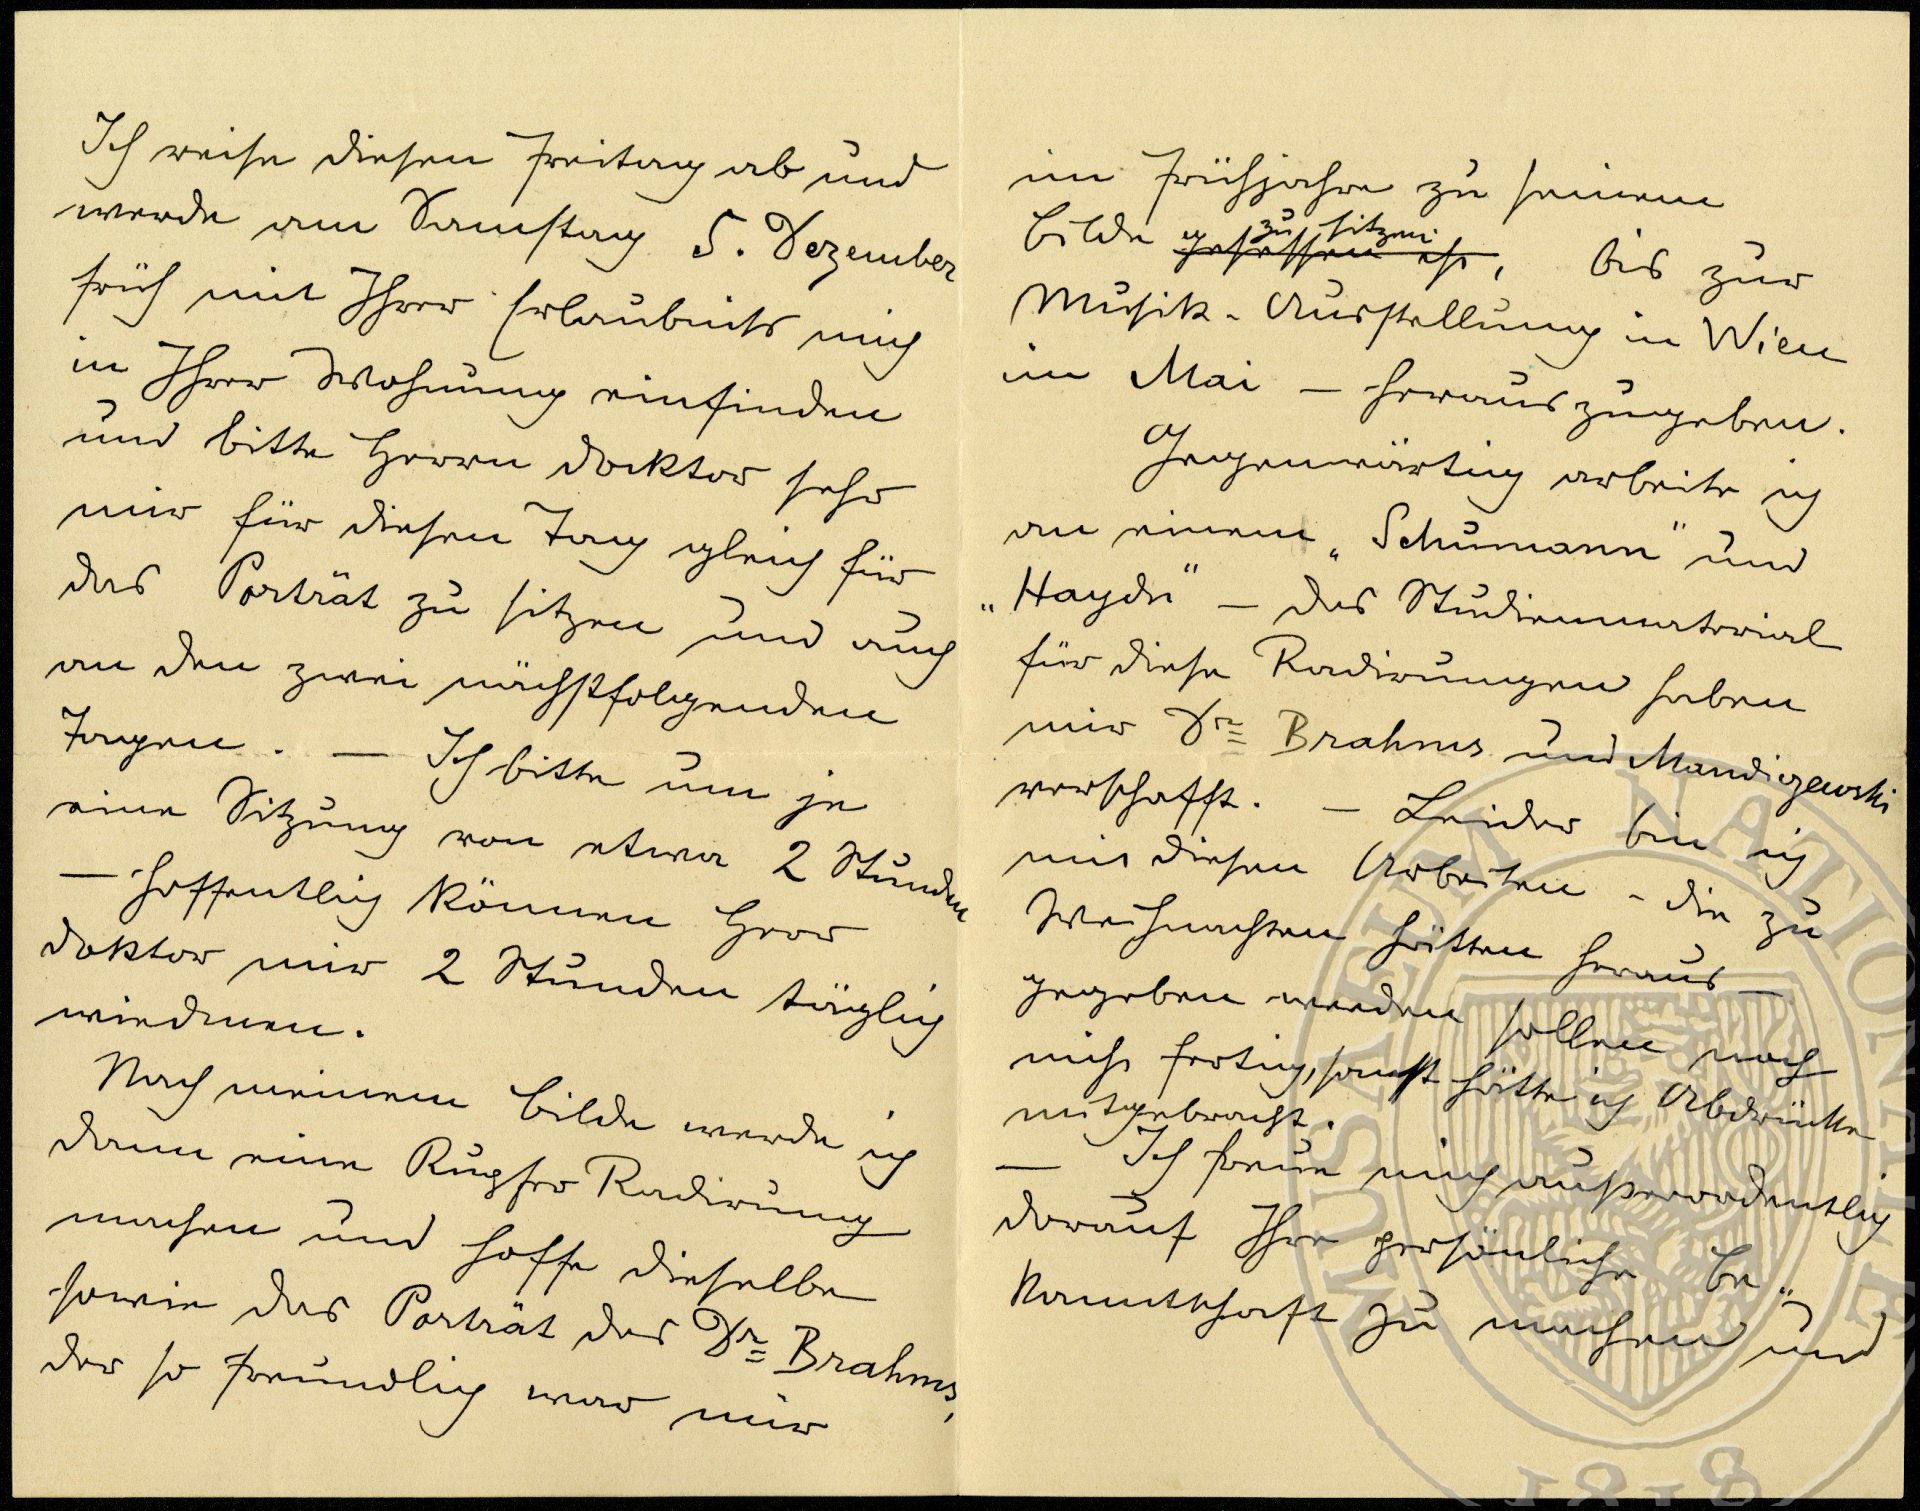 Ich reise diesen Freitag ab und
werde am Samstag 5. Dezember
früh mit Ihrer Erlaubniss mich
in Ihrer Wohnung einfinden
und bitte Herrn Docktor sehr
mir für diesen Tag gleich für
das Porträt zu sitzen und auch
an den zwei nächstfolgenden
Tagen. — Ich bitte um je
eine Sitzung von etwa 2 Stunden
— hoffentlich können Herr
Doktor mir 2 Stunden täglich
wiedmen.
Nach meinem Bilde werde ich
dann eine Kupfer Radirung
machen und hoffe dieselbe
sowie das Porträt des Dr Brahms,
der so freundlich war mir
im Frühjahre zu seinem
Bilde gesessen ist, zu sitzen bis zur
Musik-Ausstellung in Wien
im Mai — herauszugeben.
Gegenwärtig arbeite ich
an einem „Schumann" und
„Haydn" — das Studienmaterial
für diese Radirungen haben
mir Dr Brahms und Mandiczewski
verschafft. — Leider bin ich
mit diesen Arbeiten - die zu
Weihnachten hätten heraus-
gegeben werden sollen noch
nicht fertig, sonst hätte ich Abdrücke
mitgebracht.
— Ich freue mich außerordentlich
darauf Ihre persönliche Be„
kanntschaft zu machen und
MUSAEUM NATIONALE
1818